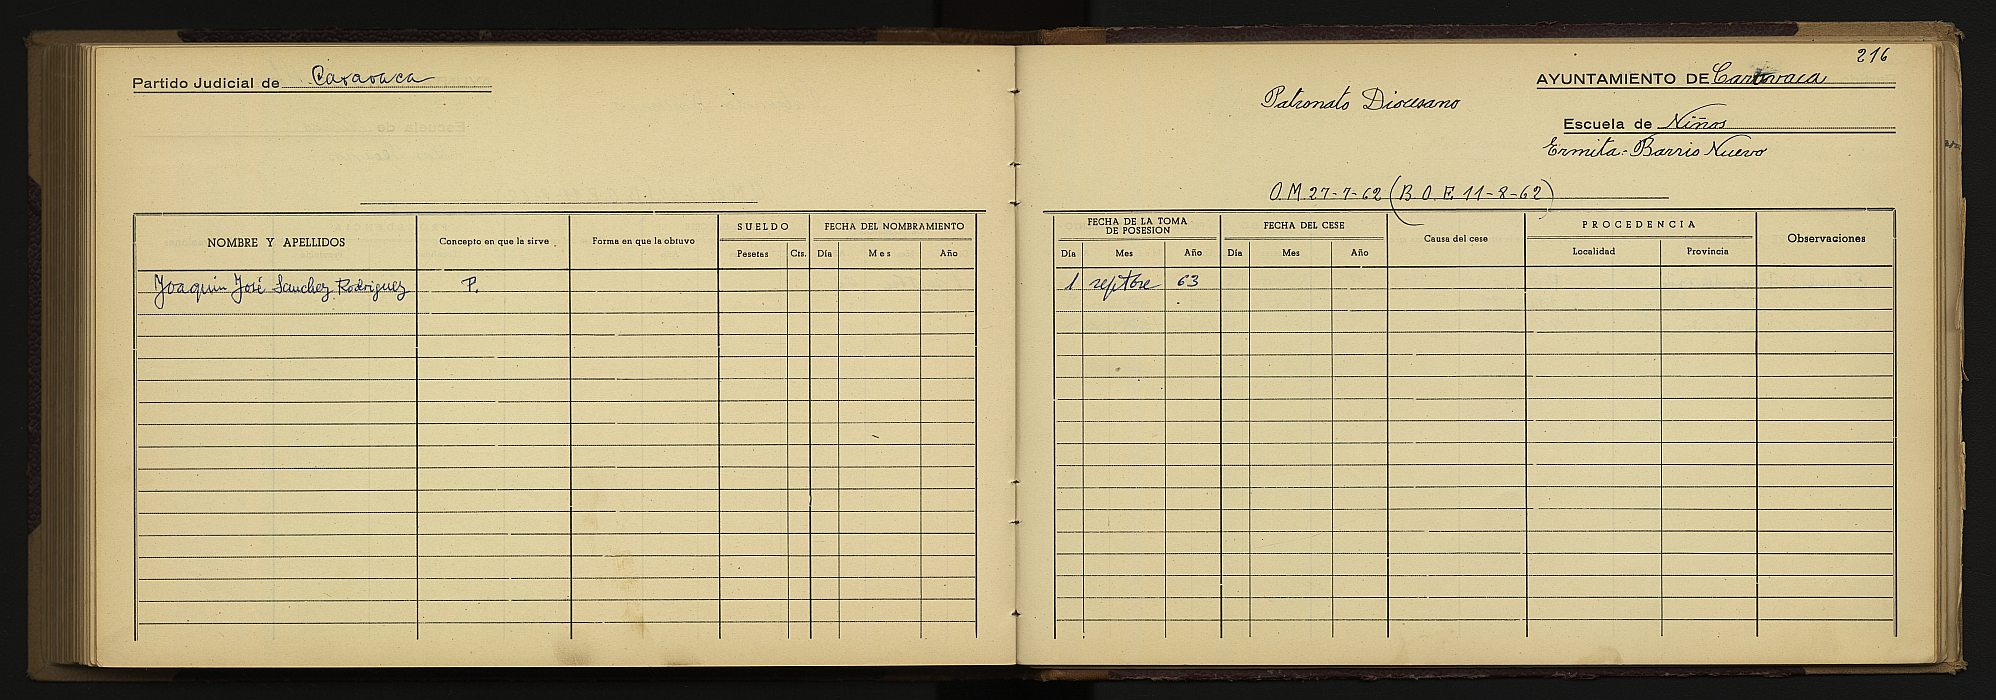 Partido Judicial de Caravaca
NOMBRE Y APELLIDOS
Concepto en que la sirve
Forma en que la obtuvo
SUELDO
Pesetas Cts.
FECHA DEL NOMBRAMIENTO
Día Mes Año
Joaquín José Sanchez Rodriguez P.
216
AYUNTAMIENTO DE Caravaca
Patronato Diocesano
Escuela de Niños
Ermita-Barrio Nuevo
O.M. 27-7-62 (B.O.E 11-8-62)
FECHA DE LA TOMA
DE POSESION
Día Mes Año
FECHA DEL CESE
Día Mes Año
Causa del cese
PROCEDENCIA
Localidad Provincia
Observaciones
1 septbre 63